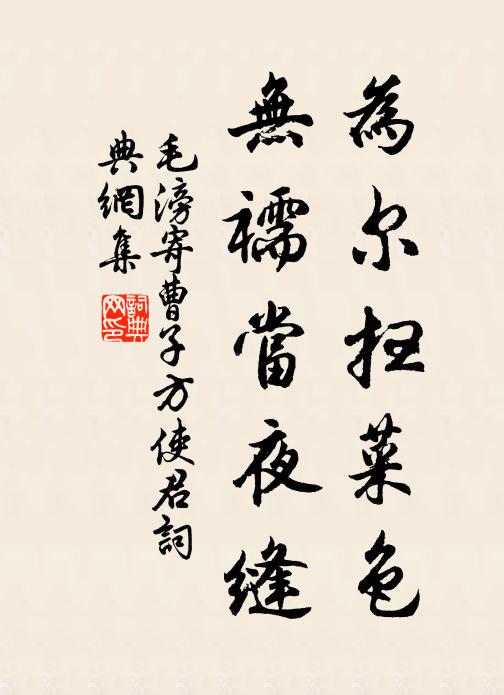 為尔扫菜色
無襦當夜縫
毛滂寄曹子方使君詞
典網集
詞典
网印